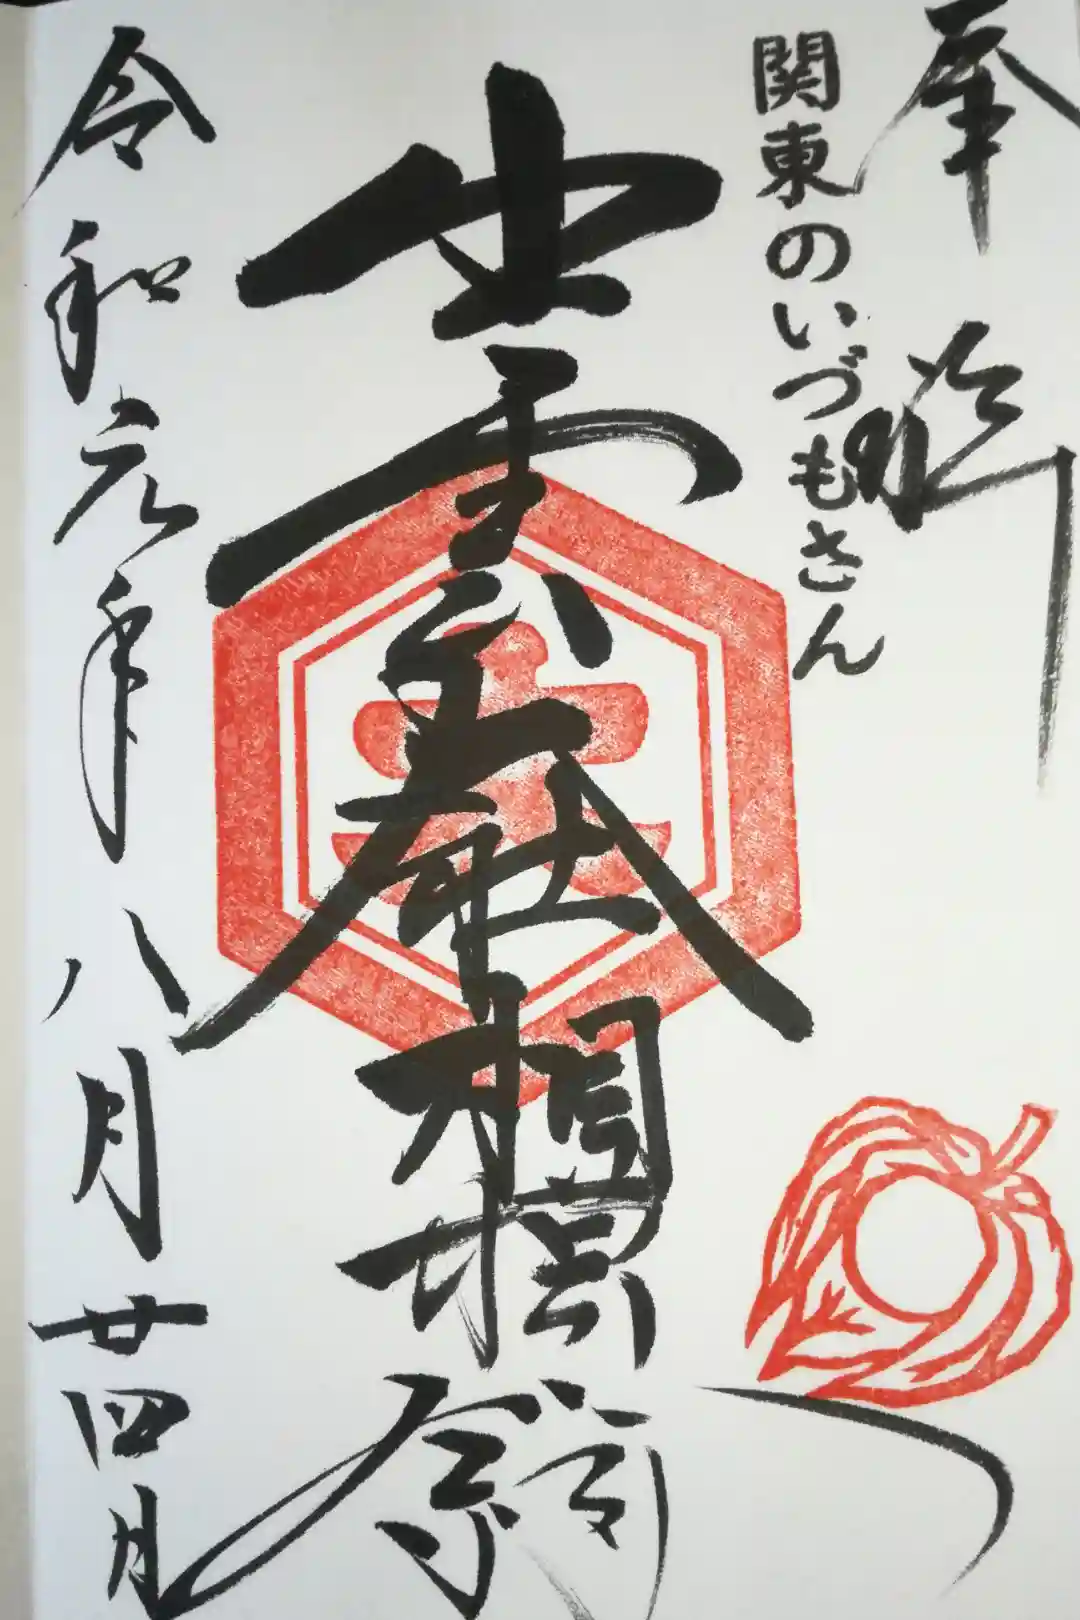 奉拝
関東のいづもさん
出雲大社相模分祠
令和元年八月廿四日